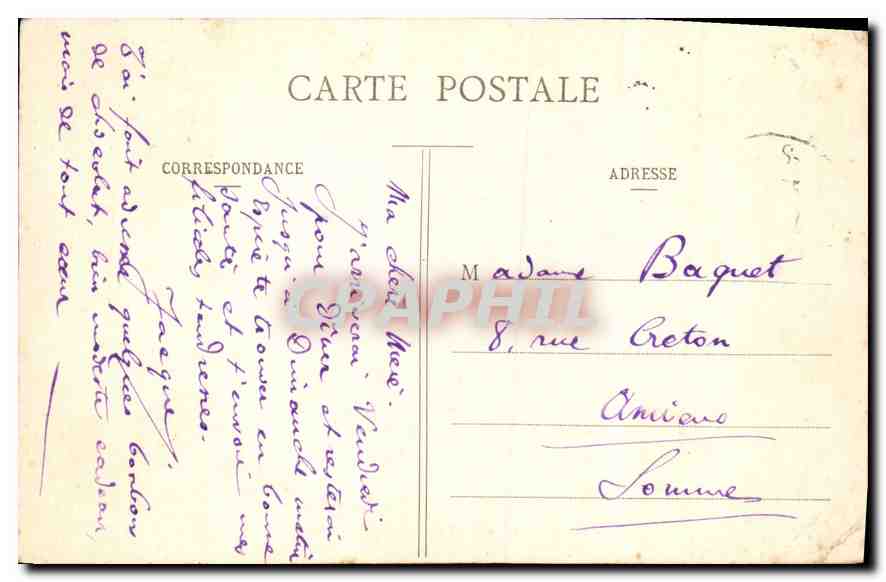 CARTE POSTALE
CORRESPONDANCE
ADRESSE
Ma chère Mère.
J'arriverai Vendredi
pour dîner et resterai
jusqu'à Dimanche matin
Espère te trouver en bonne
santé et t'envoie mes
filiales tendresses.
Jacques.
J'ai fait adresser quelques bonbons
de chocolat, bien modeste cadeau,
mais de tout cœur
Madame Baquet
8, rue Creton
Amiens
Somme
CPAPHIL